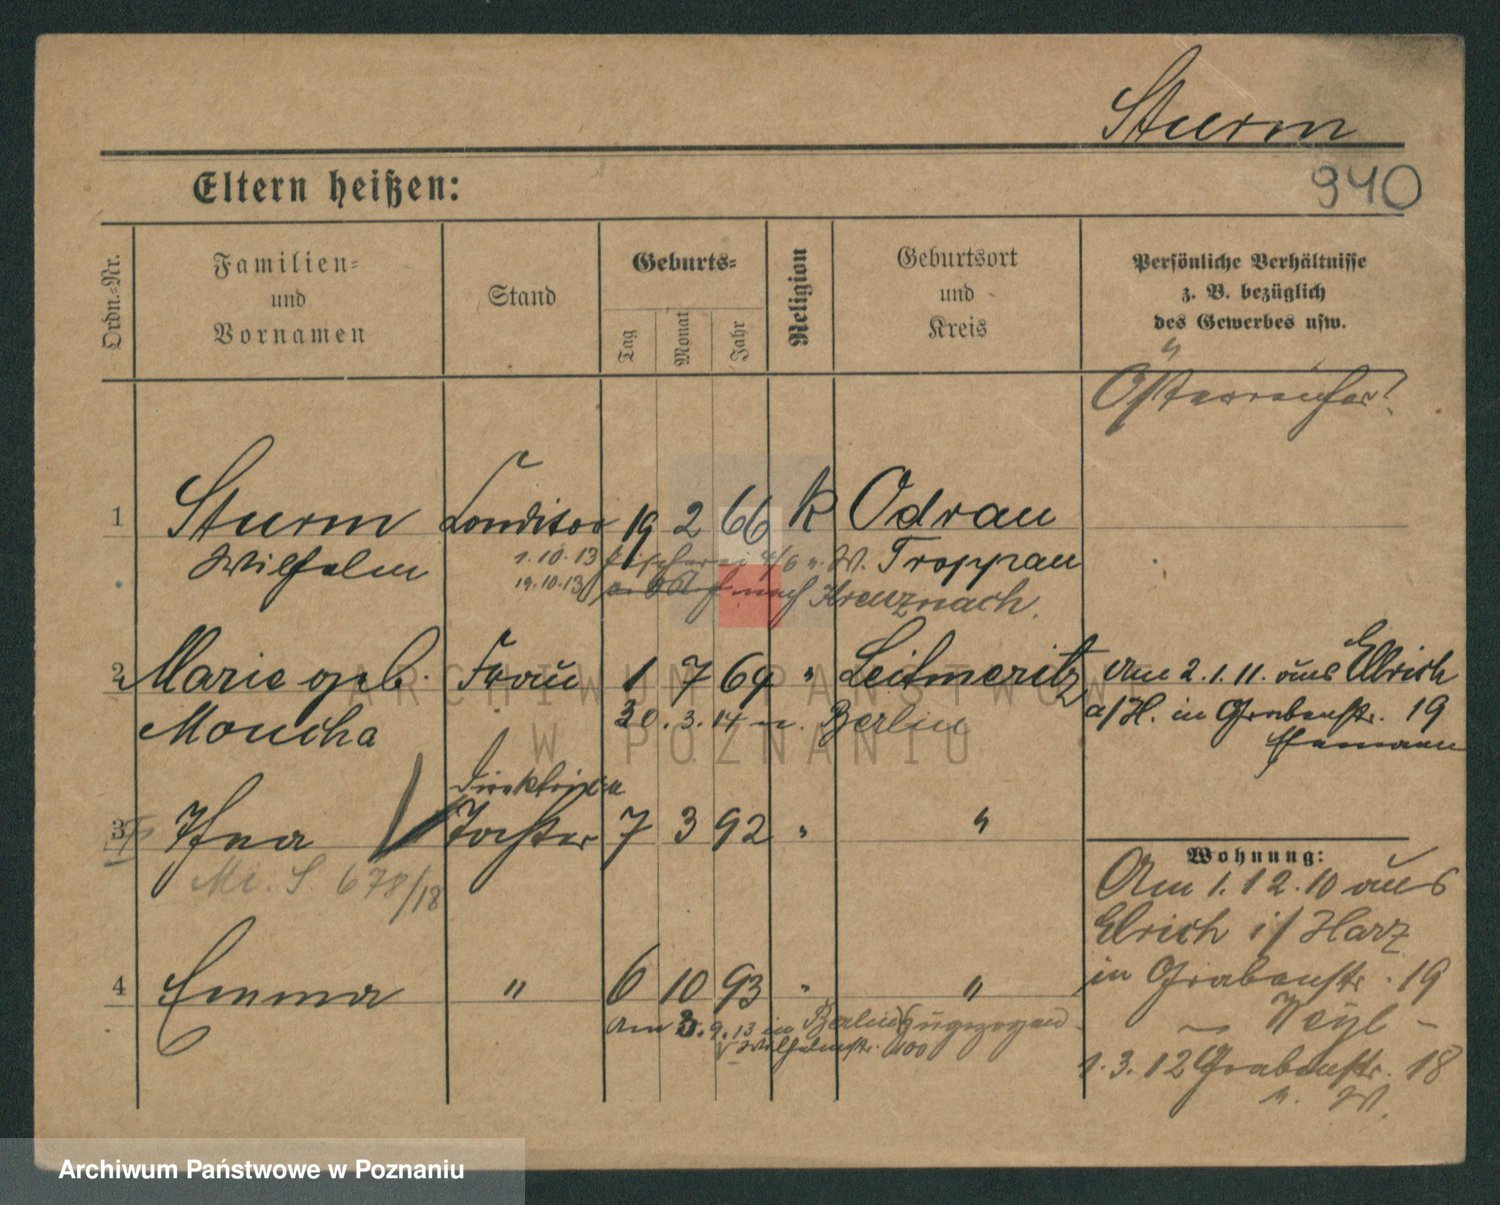 Sturm
940
Eltern heißen:
Ordn.-Nr.
Familien-
und
Vornamen
Stand
Geburts-
Tag
Monat
Jahr
Religion
Geburtsort
und
Kreis
Persönliche Verhältnisse
z. B. bezüglich
des Gewerbes usw.
Österreicher?
1 Sturm Konditor 19 2 66 k Odrau
Wilhelm 1.10.13 Fischerei 4/6 n. W. Troppau
19.10.13 nach Kreuznach.
2 Marie geb. Frau 1 7 69 " Leitmeritz Am 2.1.11. aus Ellrich
Moucha 30.3.14 n. Berlin a/H. in Grabenstr. 19
Direktrice
3 Tochter 7 3 92 " "
Mi. S. 678/18
Wohnung:
Am 1.12.10 aus
Elrich i/ Harz
in Grabenstr. 19
4 Emma " 6 10 93 " "
Am 3.9.13 in Berlin zugezogen
Wilhelmstr. 100
1.3.12 Grabenstr. 18
n. W.
ARCHIWUM PAŃSTWOWE
W POZNANIU
Archiwum Państwowe w Poznaniu